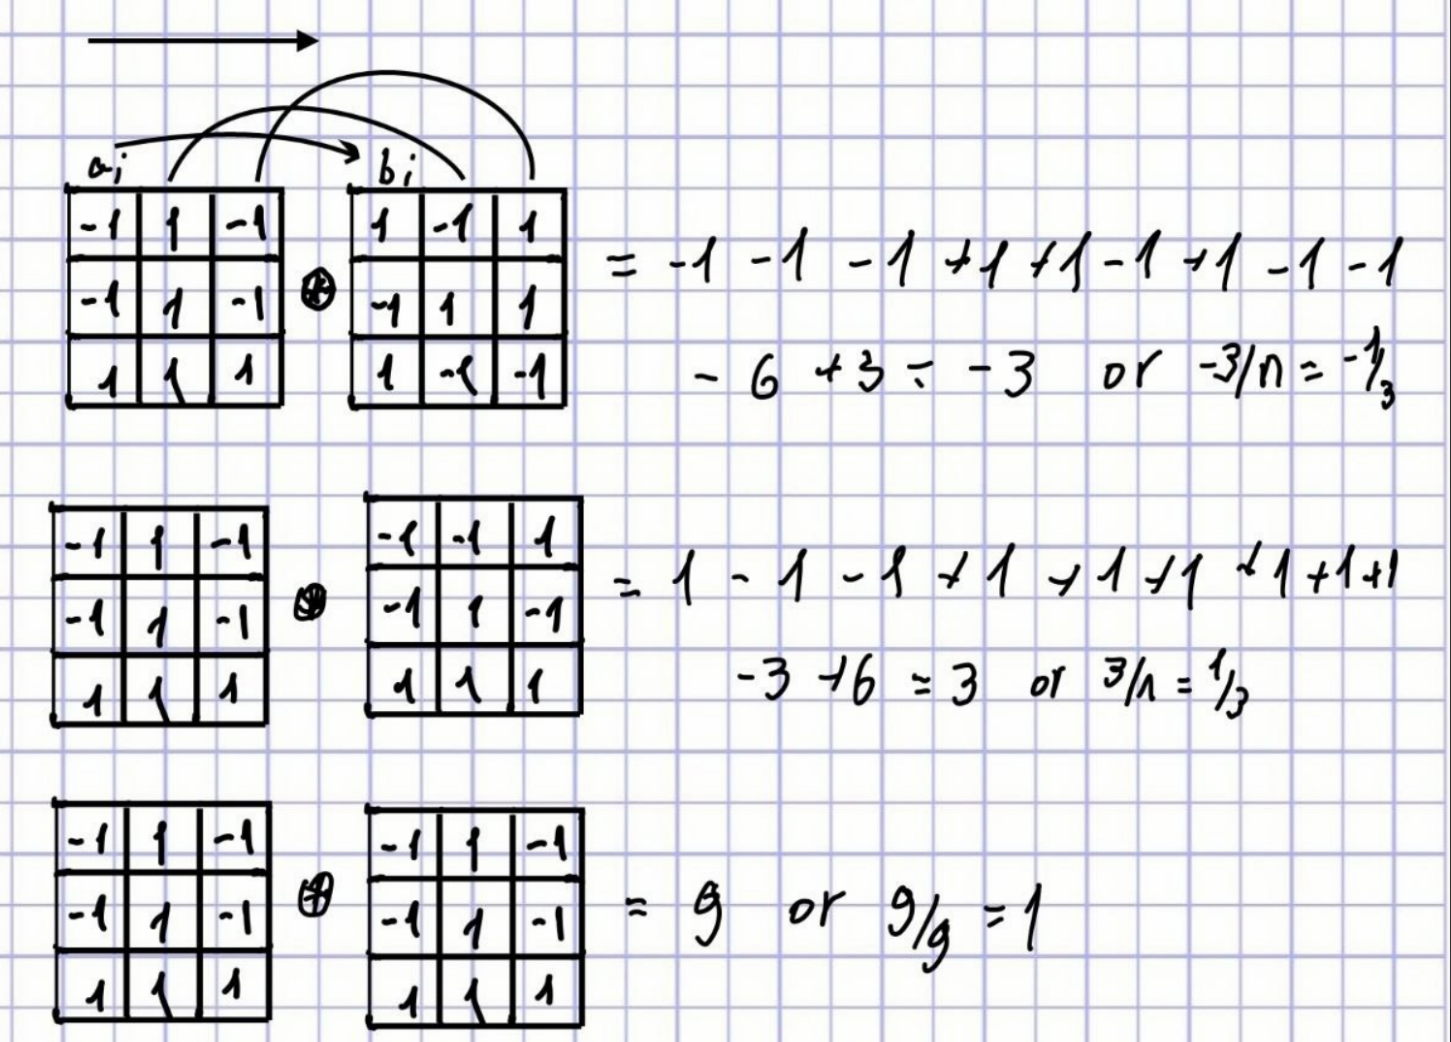 ai bi
-1 1 -1 ⊛ 1 -1 1 = -1 -1 -1 +1 +1 -1 +1 -1 -1
-1 1 -1 -1 1 1
1 1 1 1 -1 -1 - 6 + 3 = -3 or -3/n = -1/3
-1 1 -1 ⊛ -1 -1 1 = 1 - 1 - 1 + 1 + 1 + 1 + 1 + 1 + 1
-1 1 -1 -1 1 -1
1 1 1 1 1 1 -3 + 6 = 3 or 3/n = 1/3
-1 1 -1 ⊛ -1 1 -1
-1 1 -1 -1 1 -1 = 9 or 9/9 = 1
1 1 1 1 1 1